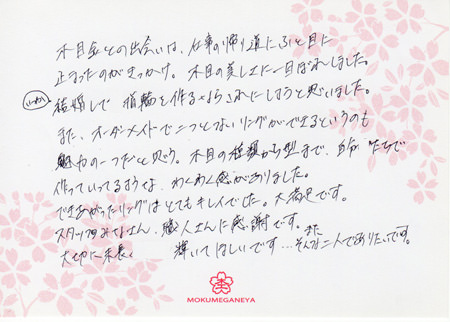 木目金との出会いは、仕事の帰り道にふと目に
止まったのがきっかけ。木目の美しさに一目ぼれしました。
いつか
結婚して指輪を作るならこれにしようと思いました。
また、オーダーメイドで二つとないリングができるというのも
魅力の一つだと思う。木目の種類から型まで、自分たちで
作っていってるような、わくわく感がありました。
できあがったリングはとてもキレイでした。大満足です。
スタッフのみなさん、職人さんに感謝です。
大切に末長く 輝いてほしいです…また
そんな二人でありたいです。
MOKUMEGANEYA